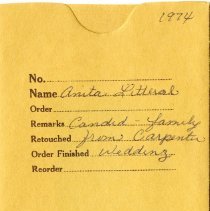 1974
No.
Name Anita Litteral
Order
Remarks Candid - family
Retouched from Carpenter
Order Finished Wedding
Reorder